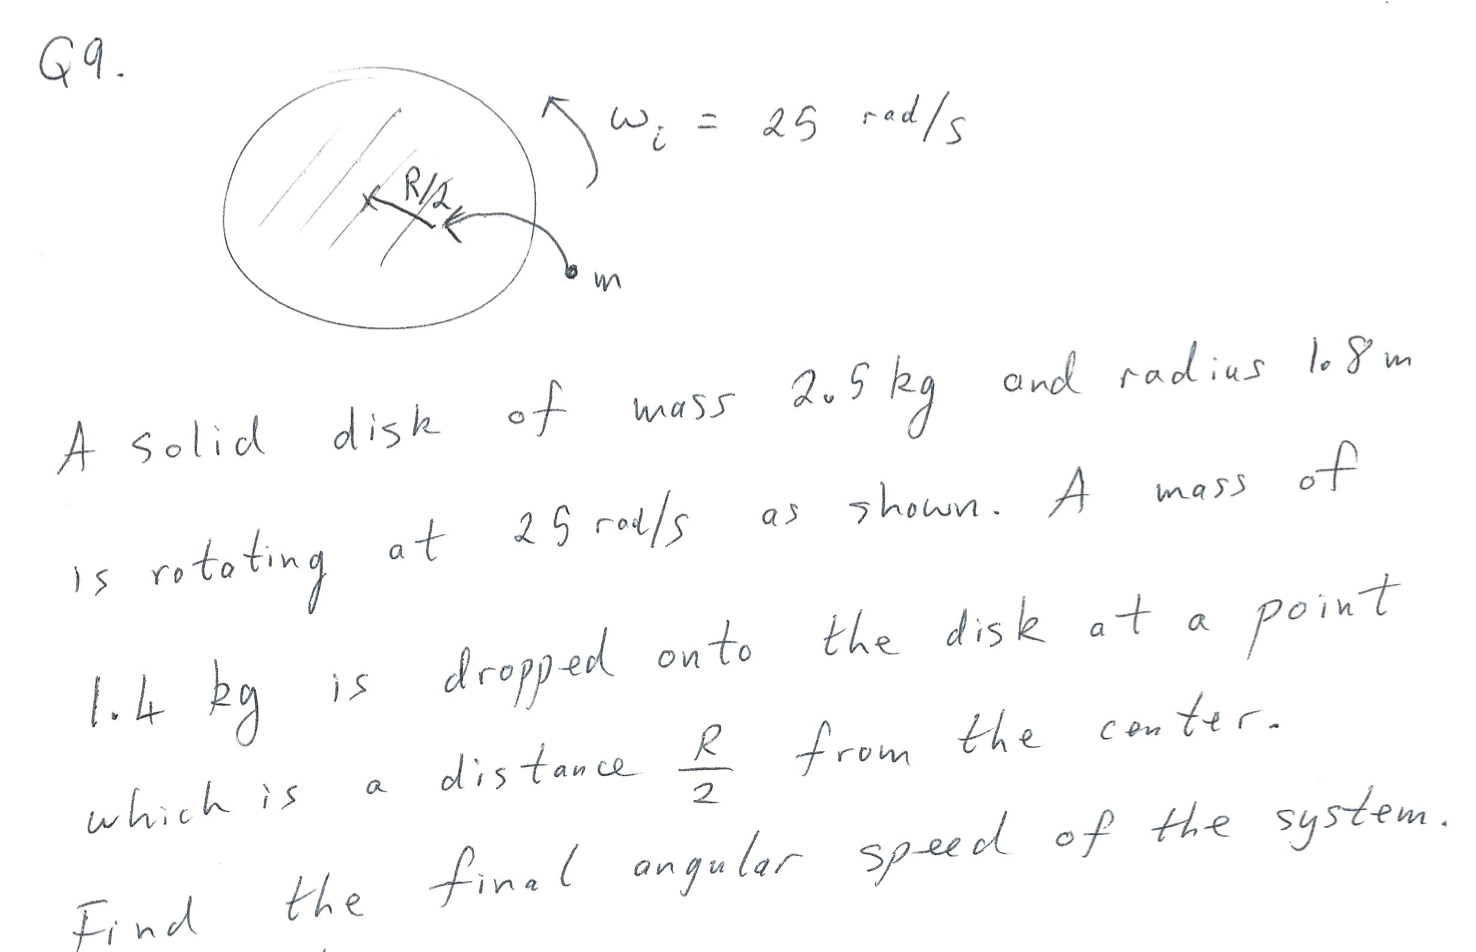 Q9.
ωᵢ = 25 rad/s
R/2
m
A solid disk of mass 2.5 kg and radius 1.8 m
is rotating at 25 rad/s as shown. A mass of
1.4 kg is dropped onto the disk at a point
which is a distance R/2 from the center.
Find the final angular speed of the system.